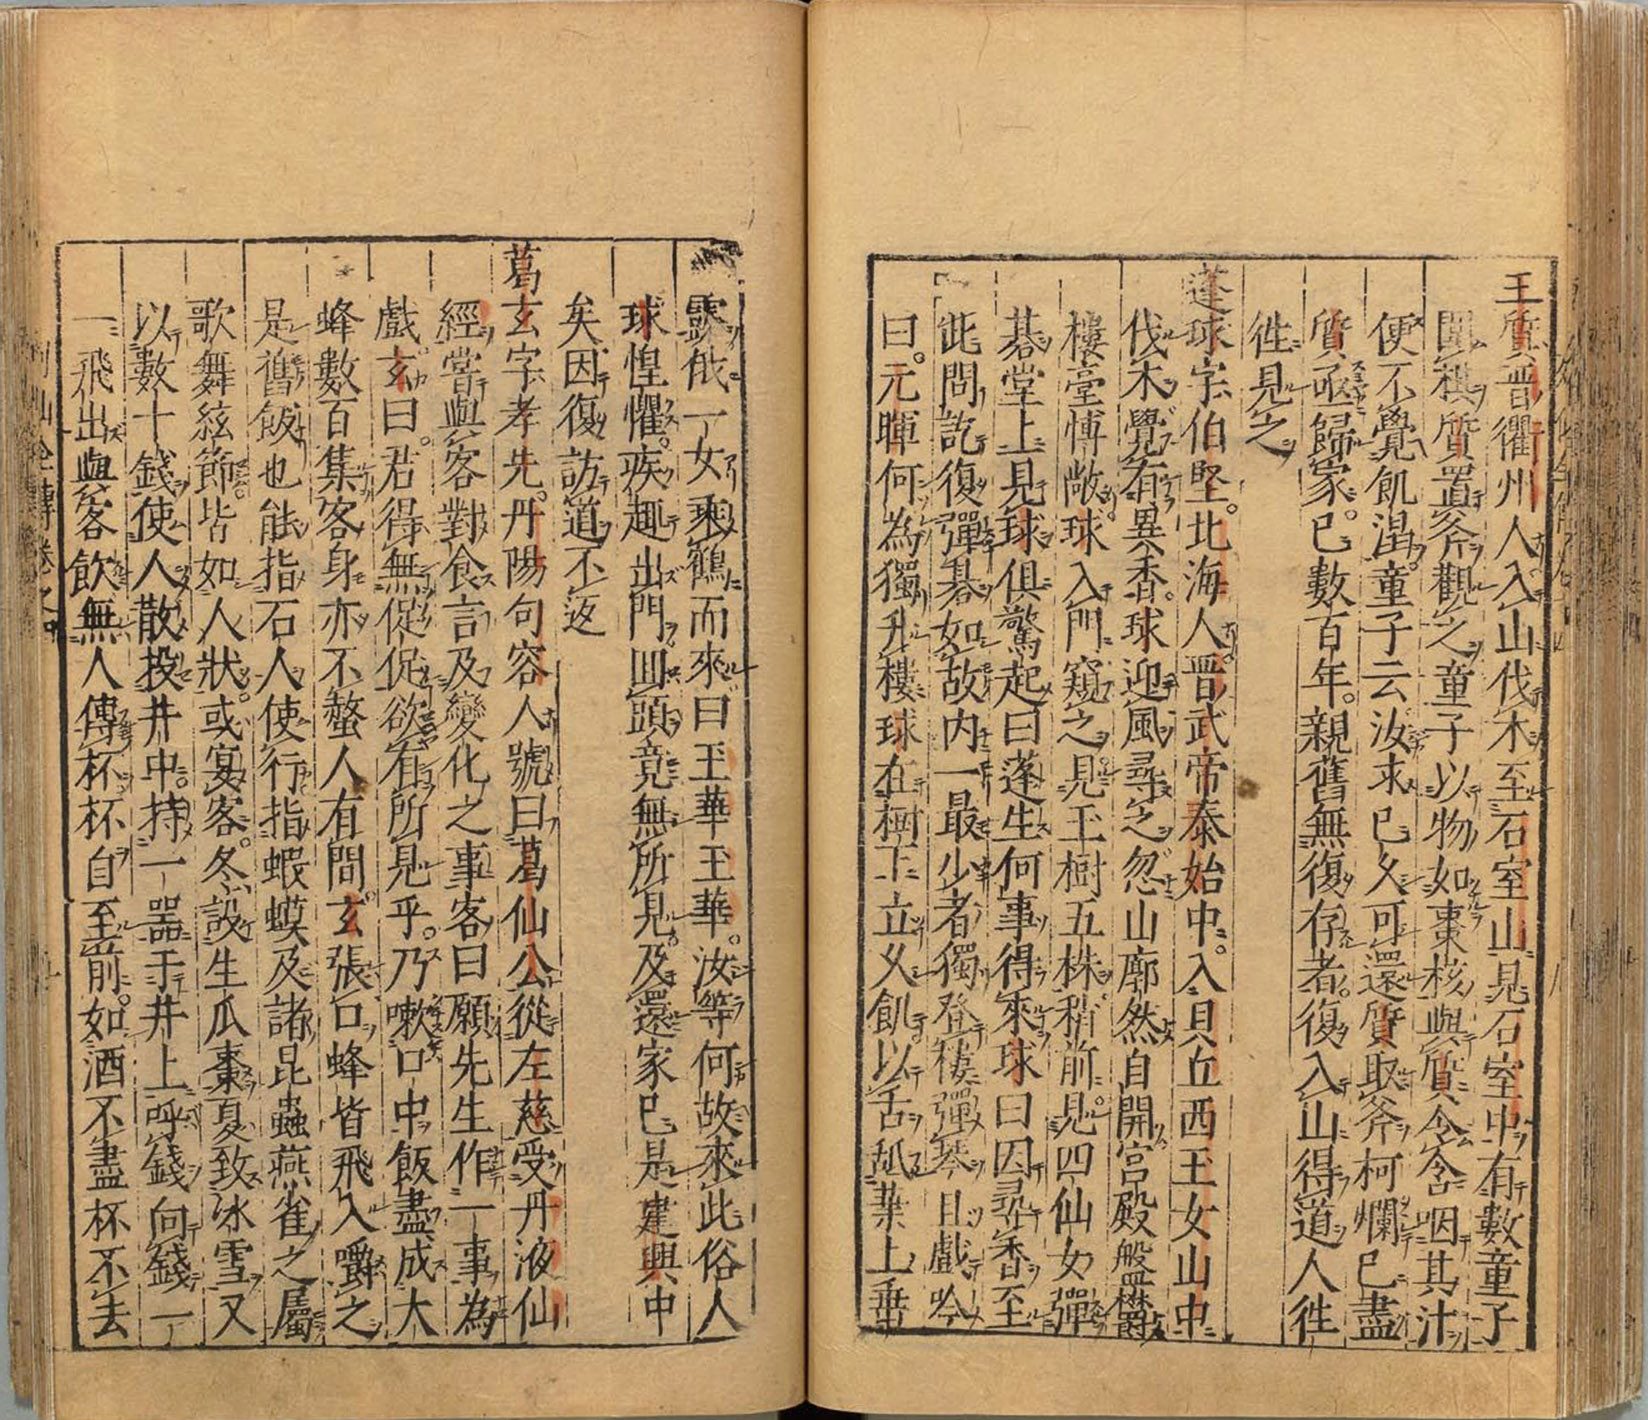 王質晋衢州人入山伐木至石室山見石室中有數童子
圍棋質置斧觀之童子以物如棗核與質令含咽其汁
便不覺飢渴童子云汝來已久可還質取斧柯爛已盡
質亟歸家已數百年親舊無復存者復入山得道人徃
徃見之
蓬球字伯堅北海人晋武帝泰始中入貝丘西王女山中
伐木覺有異香球迎風尋之忽山廓然自開宮殿盤欝
樓臺博敞球入門窺之見玉樹五株稍前見四仙女彈
棊堂上見球俱驚起曰蓬生何事得來球曰因尋香至
此問訖復彈棊如故内一最少者獨登樓彈琴且戲吟
曰元暉何為獨升樓球在樹下立乂飢以舌舐葉上垂
露俄一女乘鶴而來曰王華王華汝等何故來此俗人
球惶懼疾趣出門回頭竟無所見及還家已是建興中
矣因復訪道不返
葛玄字孝先丹陽句容人號曰葛仙公從左慈受丹液仙
經嘗與客對食言及變化之事客曰願先生作一事為
戲玄曰君得無促促欲有所見乎乃嗽口中飯盡成大
蜂數百集客身亦不螫人有間玄張口蜂皆飛入嚼之
是舊飯也能指石人使行指蝦蟆及諸昆蟲燕雀之屬
歌舞絃節皆如人狀或宴客冬設生瓜棗夏致冰雪又
以數十錢使人散投井中持一器于井上呼錢向錢一
一飛出與客飲無人傳杯杯自至前如酒不盡杯不去